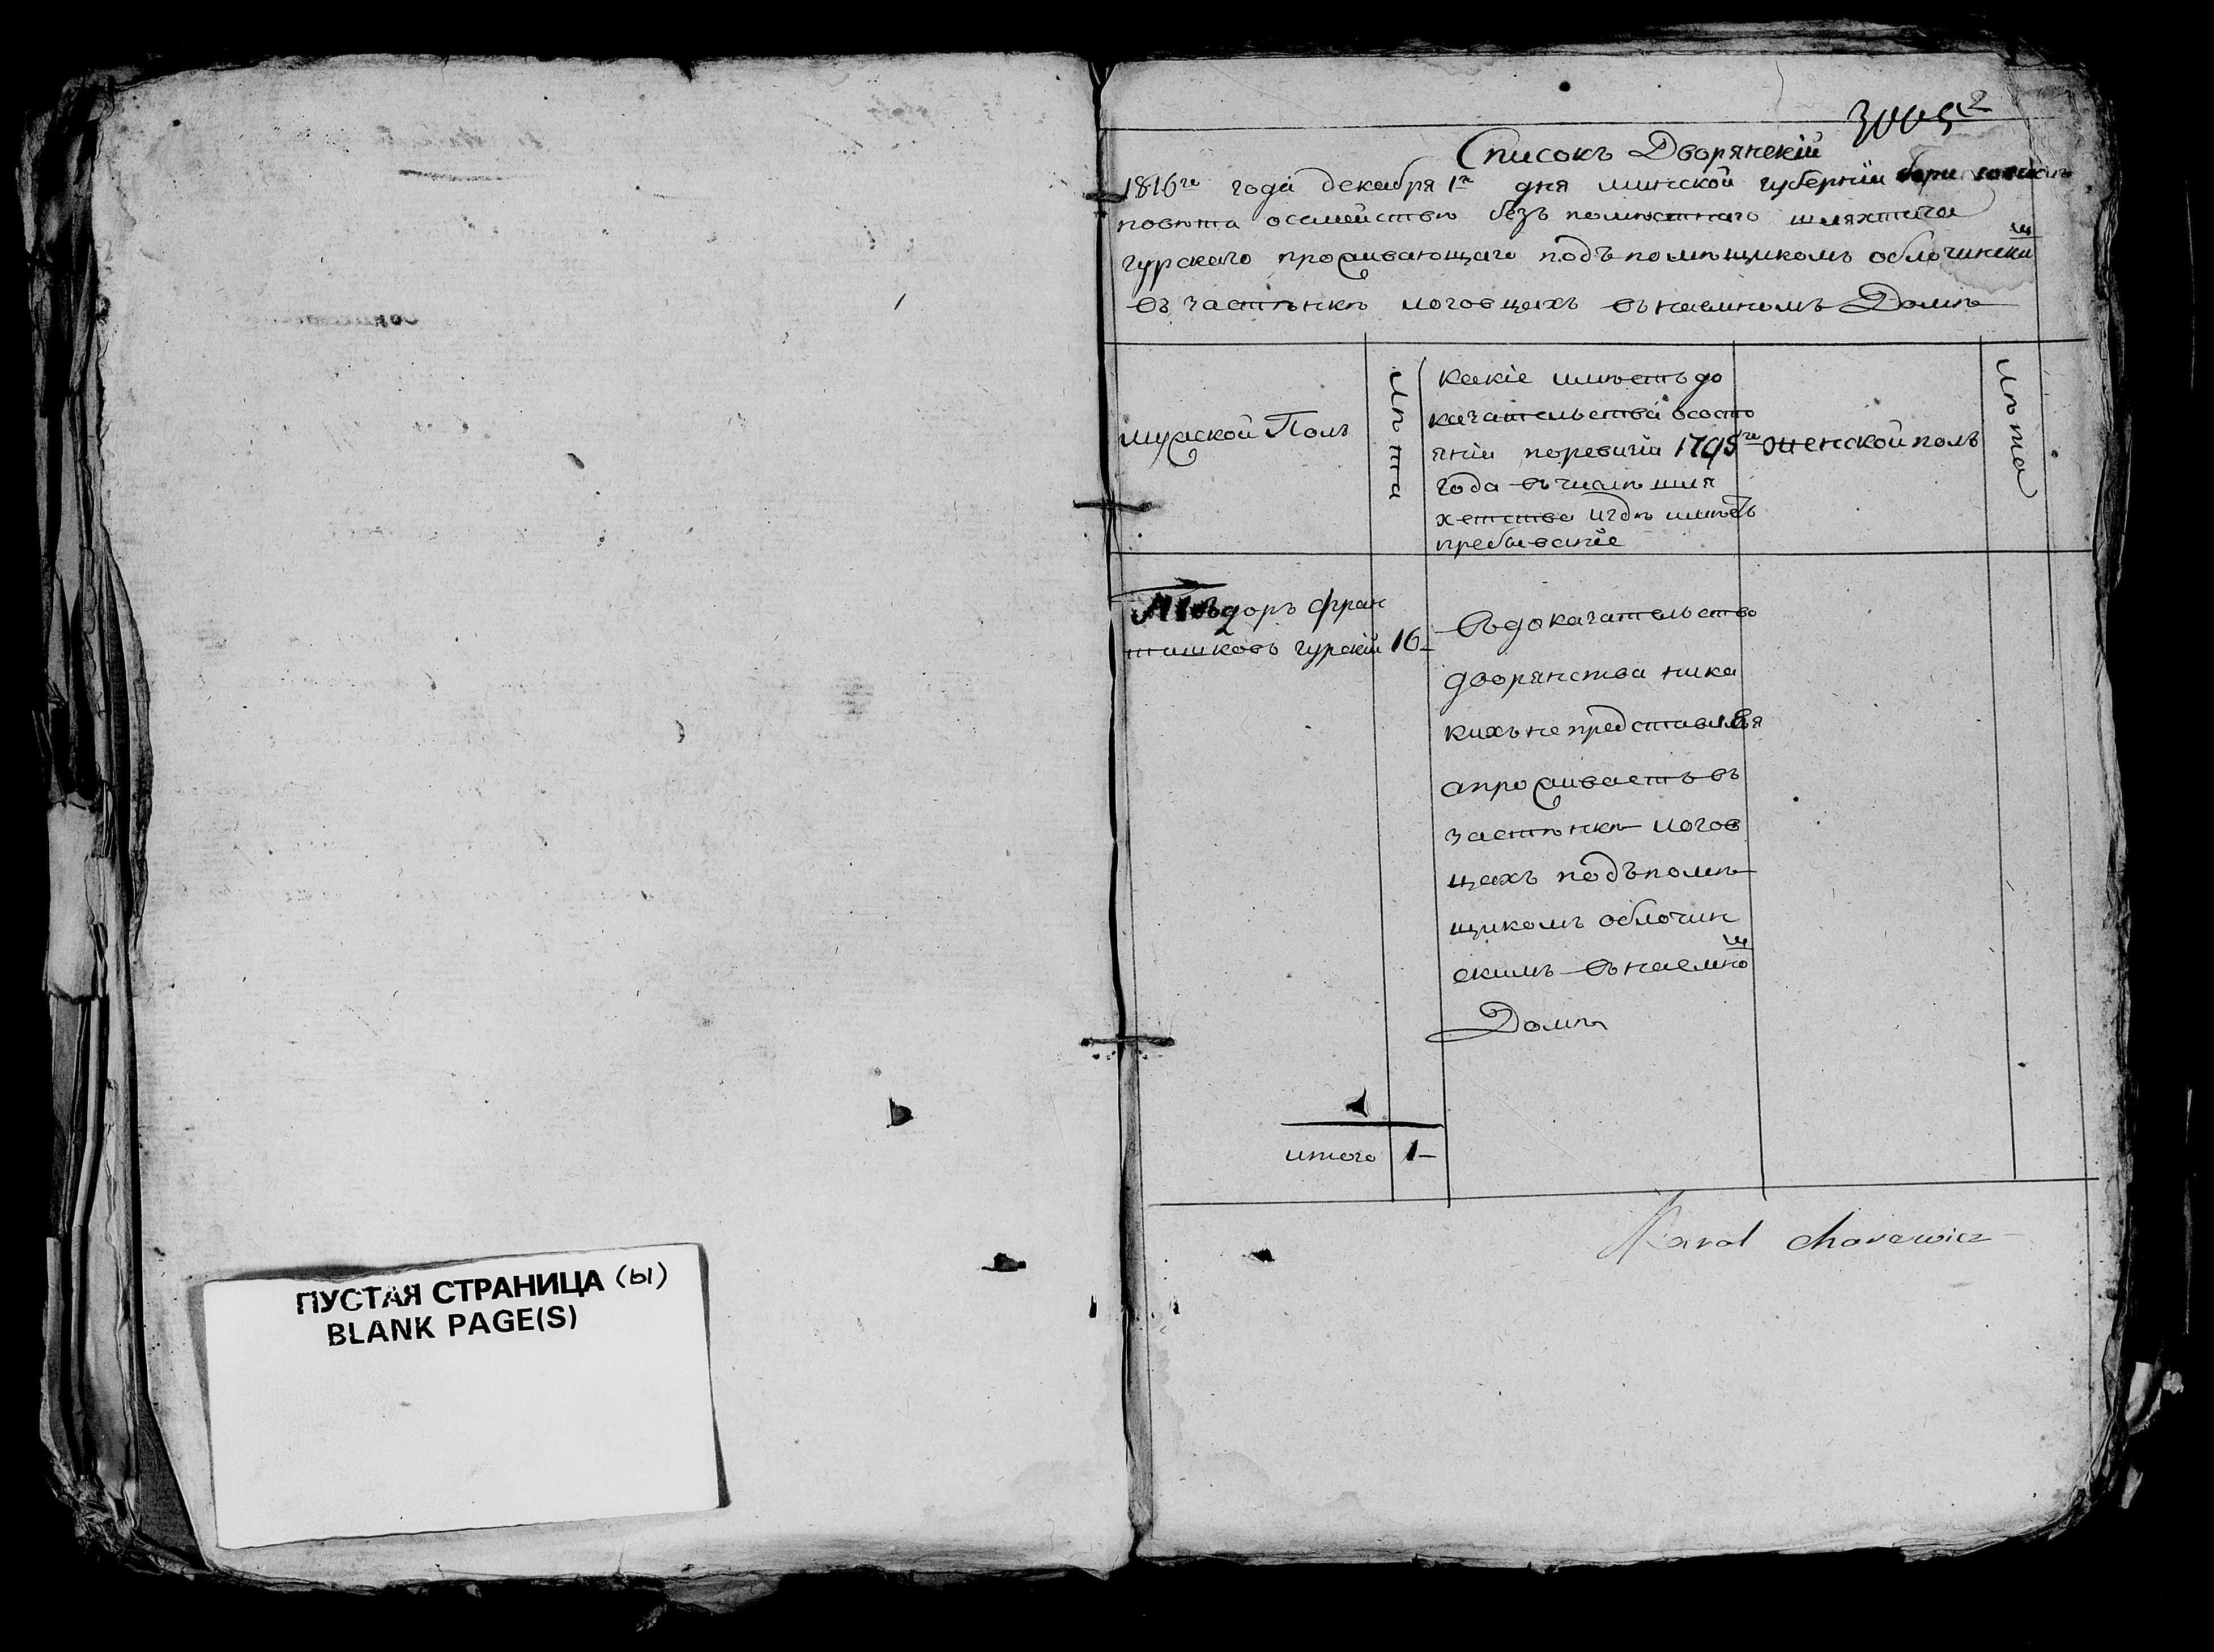 ПУСТАЯ СТРАНИЦА (ы)
BLANK PAGE(S)
2
Списокъ Дворянскій
1816го года декабря 1го дня минской губерніи
повѣта осемействѣ безъ помѣстнаго шляхтича
гурскаго проживающаго подъ помѣщикомъ облочински
мъ
въ застѣнкѣ логовцахъ въ наемномъ Домѣ
мужской Полъ
Лѣта
какіе имѣетъ до
казательства ососто
яніи поревизіи 1795го
года въ числѣ шля
хетства игдѣ имѣетъ
пребываніе
женской полъ
Лѣта
доръ фран
тишковъ гурскій 16
въ доказательство
дворянства ника
кихъ не представилъ
апроживаетъ въ
застѣнкѣ логов
цахъ подъ помѣ
щикомъ облочин
скимъ въ наемно
мъ
Домѣ
итого 1
Karol